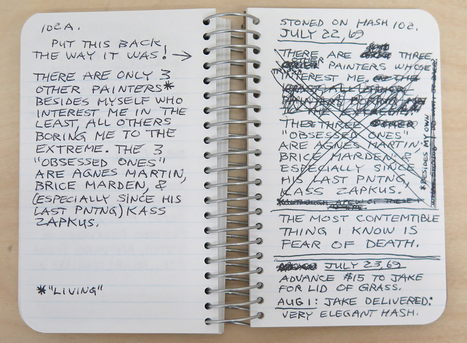 102A.
PUT THIS BACK
THE WAY IT WAS! →
THERE ARE ONLY 3
OTHER PAINTERS*
BESIDES MYSELF WHO
INTEREST ME IN THE
LEAST, ALL OTHERS
BORING ME TO THE
EXTREME. THE 3
"OBSESSED ONES"
ARE AGNES MARTIN,
BRICE MARDEN, &
(ESPECIALLY SINCE HIS
LAST PNTNG) KASS
ZAPKUS.
*"LIVING"
STONED ON HASH 102.
JULY 22, 69
THERE ARE THREE
PAINTERS WHOSE
INTEREST ME,
THE THREE
"OBSESSED ONES"
ARE AGNES MARTIN,
BRICE MARDEN, &
ESPECIALLY SINCE
HIS LAST PNTNG,
KASS ZAPKUS.
*BESIDES MY OWN
THE MOST CONTEMTIBLE
THING I KNOW IS
FEAR OF DEATH.
JULY 23, 69
ADVANCE $15 TO JAKE
FOR LID OF GRASS.
AUG 1: JAKE DELIVERED:
VERY ELEGANT HASH.